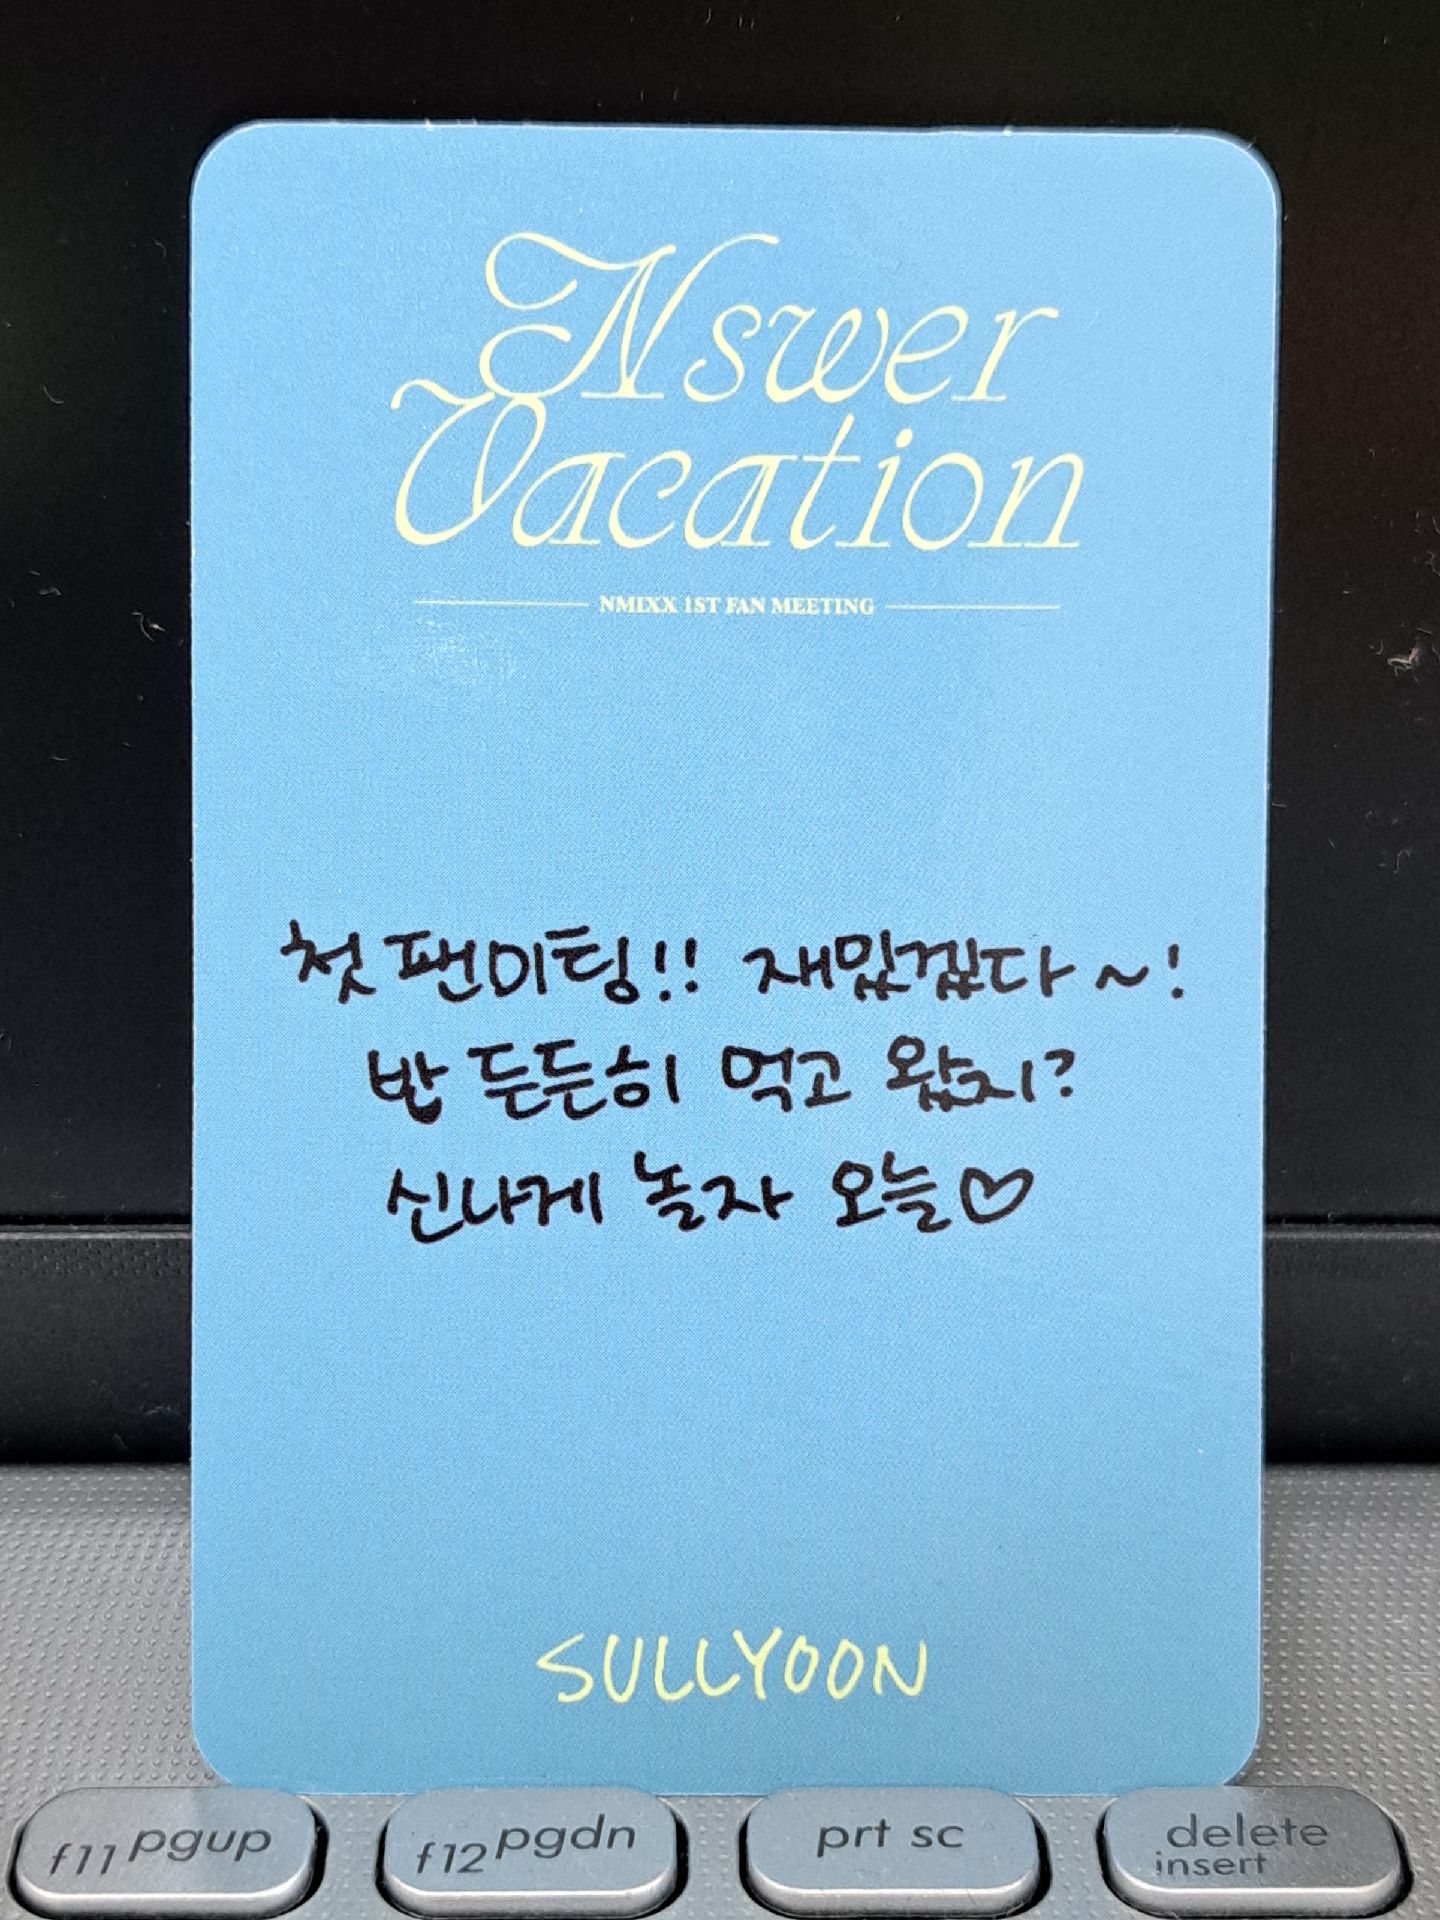 Nswer
Vacation
NMIXX 1ST FAN MEETING
첫 팬미팅!! 재밌겠다~!
밥 든든히 먹고 왔지?
신나게 놀자 오늘♡
SULLYOON
f11 pgup
f12 pgdn
prt sc
delete
insert